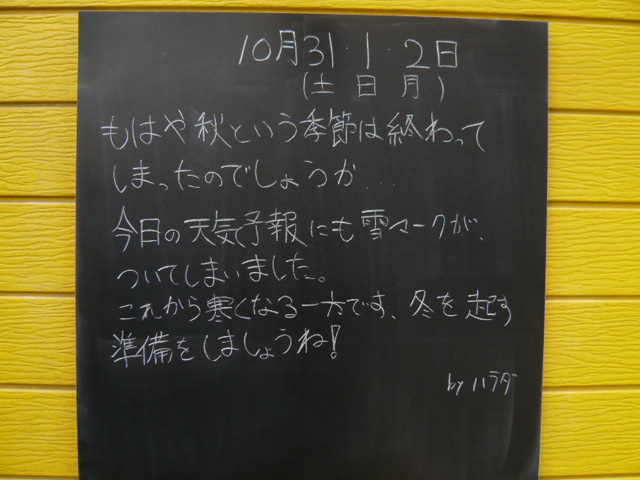 10月31・1・2日
(土 日 月)
もはや秋という季節は終わって
しまったのでしょうか...
今日の天気予報にも雪マークが、
ついてしまいました。
これから寒くなる一方です、冬を起す
準備をしましょうね!
by ハラダ